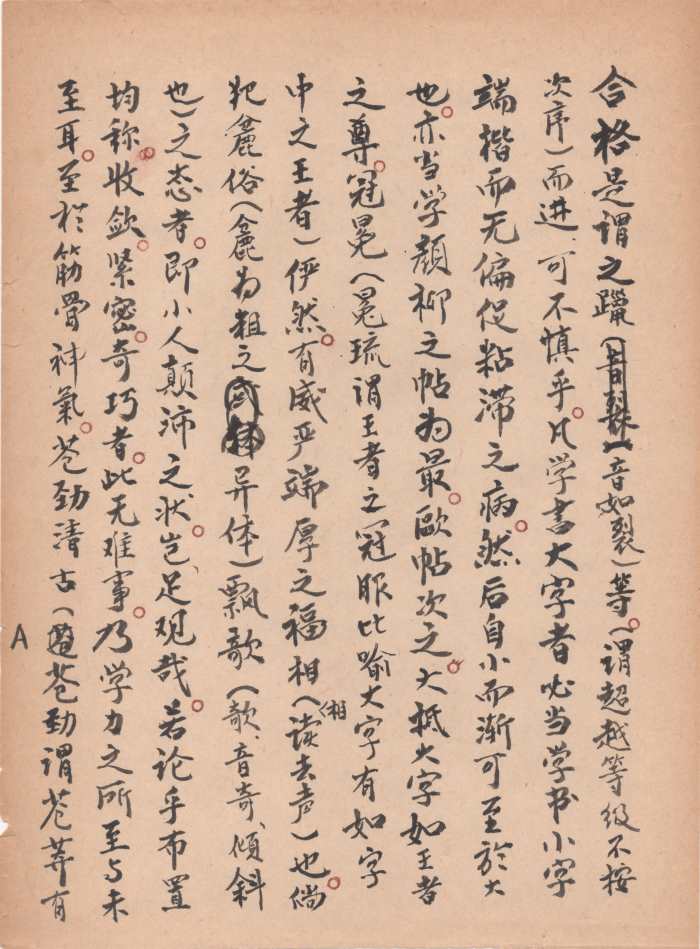 合格是谓之躐(音如裂)等。(谓超越等级不按
次序)而进、可不慎乎。凡学书大字者必当学书小字
端楷而无偏促粘滞之病。然后自小而渐可至於大
也。亦当学颜柳之帖为最。欧帖次之。大抵大字如王者
之尊。冠冕(冕琉谓王者之冠服比喻大字有如字
中之王者)俨然。有威严端厚之福相(读去声)也。倘
〈相
犯麄俗(麄为粗之异体)飘欹(欹、音奇、倾斜
也)之态者。即小人颠沛之状。岂足观哉。若论乎布置
均称。收敛。紧密。奇巧者。此无难事。乃学力之所至与未
至耳。至於筋骨神氣。苍劲清古(苍劲谓苍莽有
A